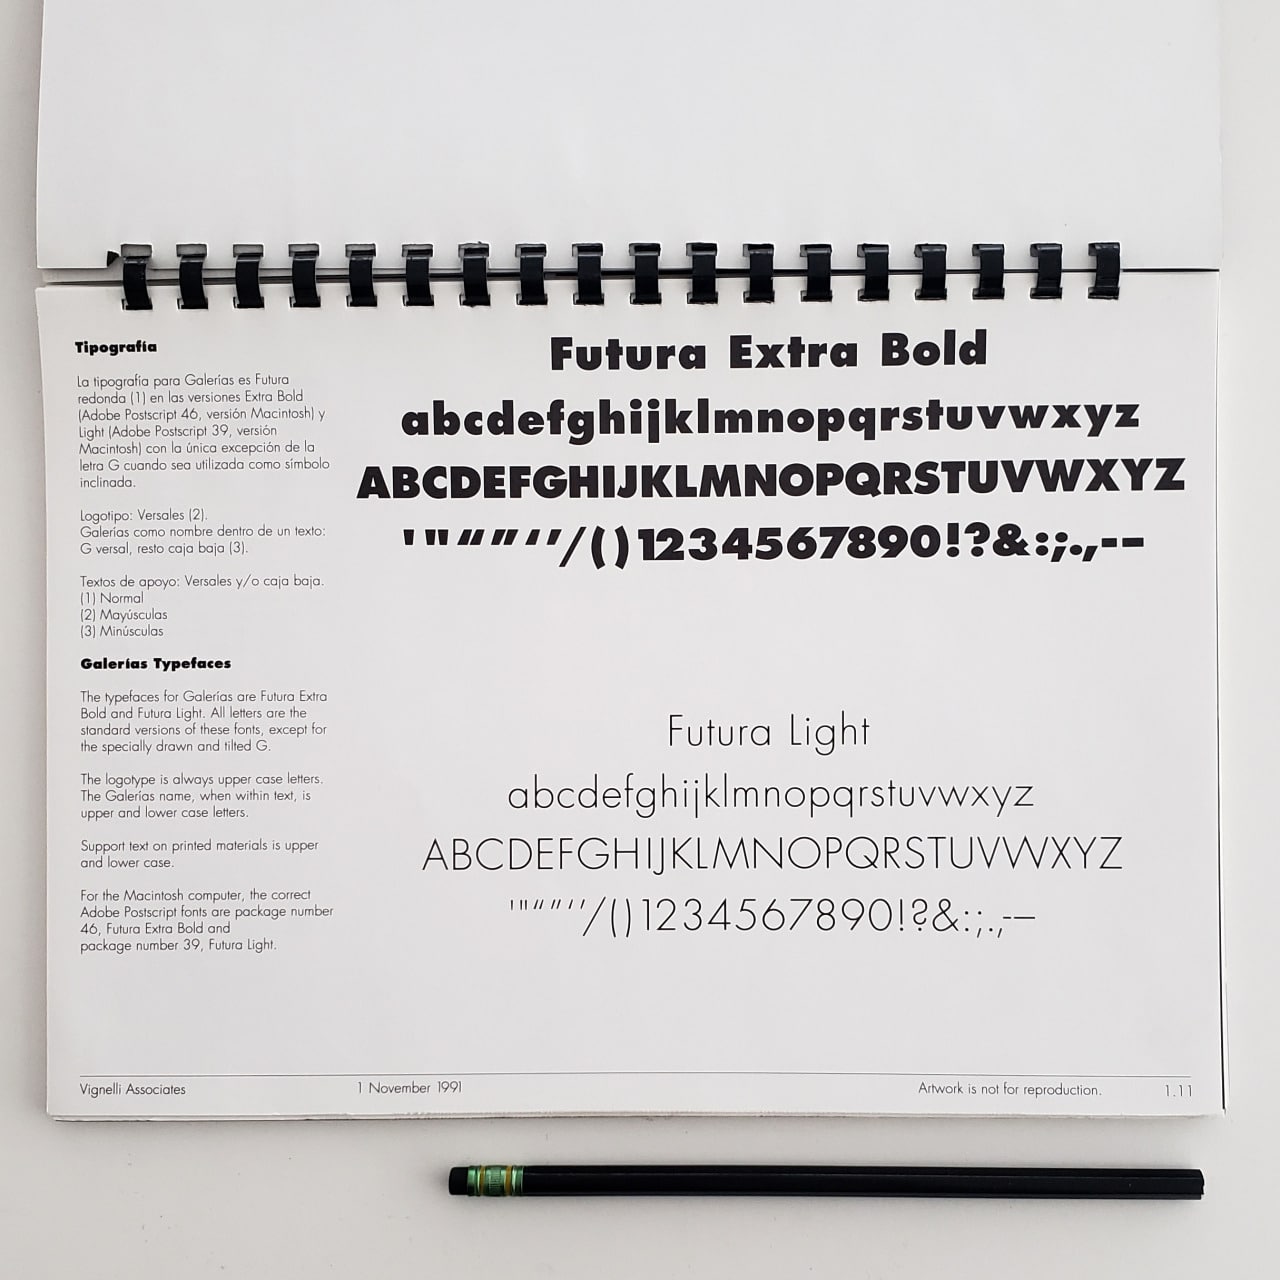 Tipografía
La tipografía para Galerías es Futura
redonda (1) en las versiones Extra Bold
(Adobe Postscript 46, versión Macintosh) y
Light (Adobe Postscript 39, versión
Macintosh) con la única excepción de la
letra G cuando sea utilizada como símbolo
inclinada.
Logotipo: Versales (2).
Galerías como nombre dentro de un texto:
G versal, resto caja baja (3).
Textos de apoyo: Versales y/o caja baja.
(1) Normal
(2) Mayúsculas
(3) Minúsculas
Galerías Typefaces
The typefaces for Galerías are Futura Extra
Bold and Futura Light. All letters are the
standard versions of these fonts, except for
the specially drawn and tilted G.
The logotype is always upper case letters.
The Galerías name, when within text, is
upper and lower case letters.
Support text on printed materials is upper
and lower case.
For the Macintosh computer, the correct
Adobe Postscript fonts are package number
46, Futura Extra Bold and
package number 39, Futura Light.
Futura Extra Bold
abcdefghijklmnopqrstuvwxyz
ABCDEFGHIJKLMNOPQRSTUVWXYZ
'"“”‘’/()1234567890!?&:;.,-–
Futura Light
abcdefghijklmnopqrstuvwxyz
ABCDEFGHIJKLMNOPQRSTUVWXYZ
'"“”‘’/()1234567890!?&:;.,-–
Vignelli Associates
1 November 1991
Artwork is not for reproduction.
1.11